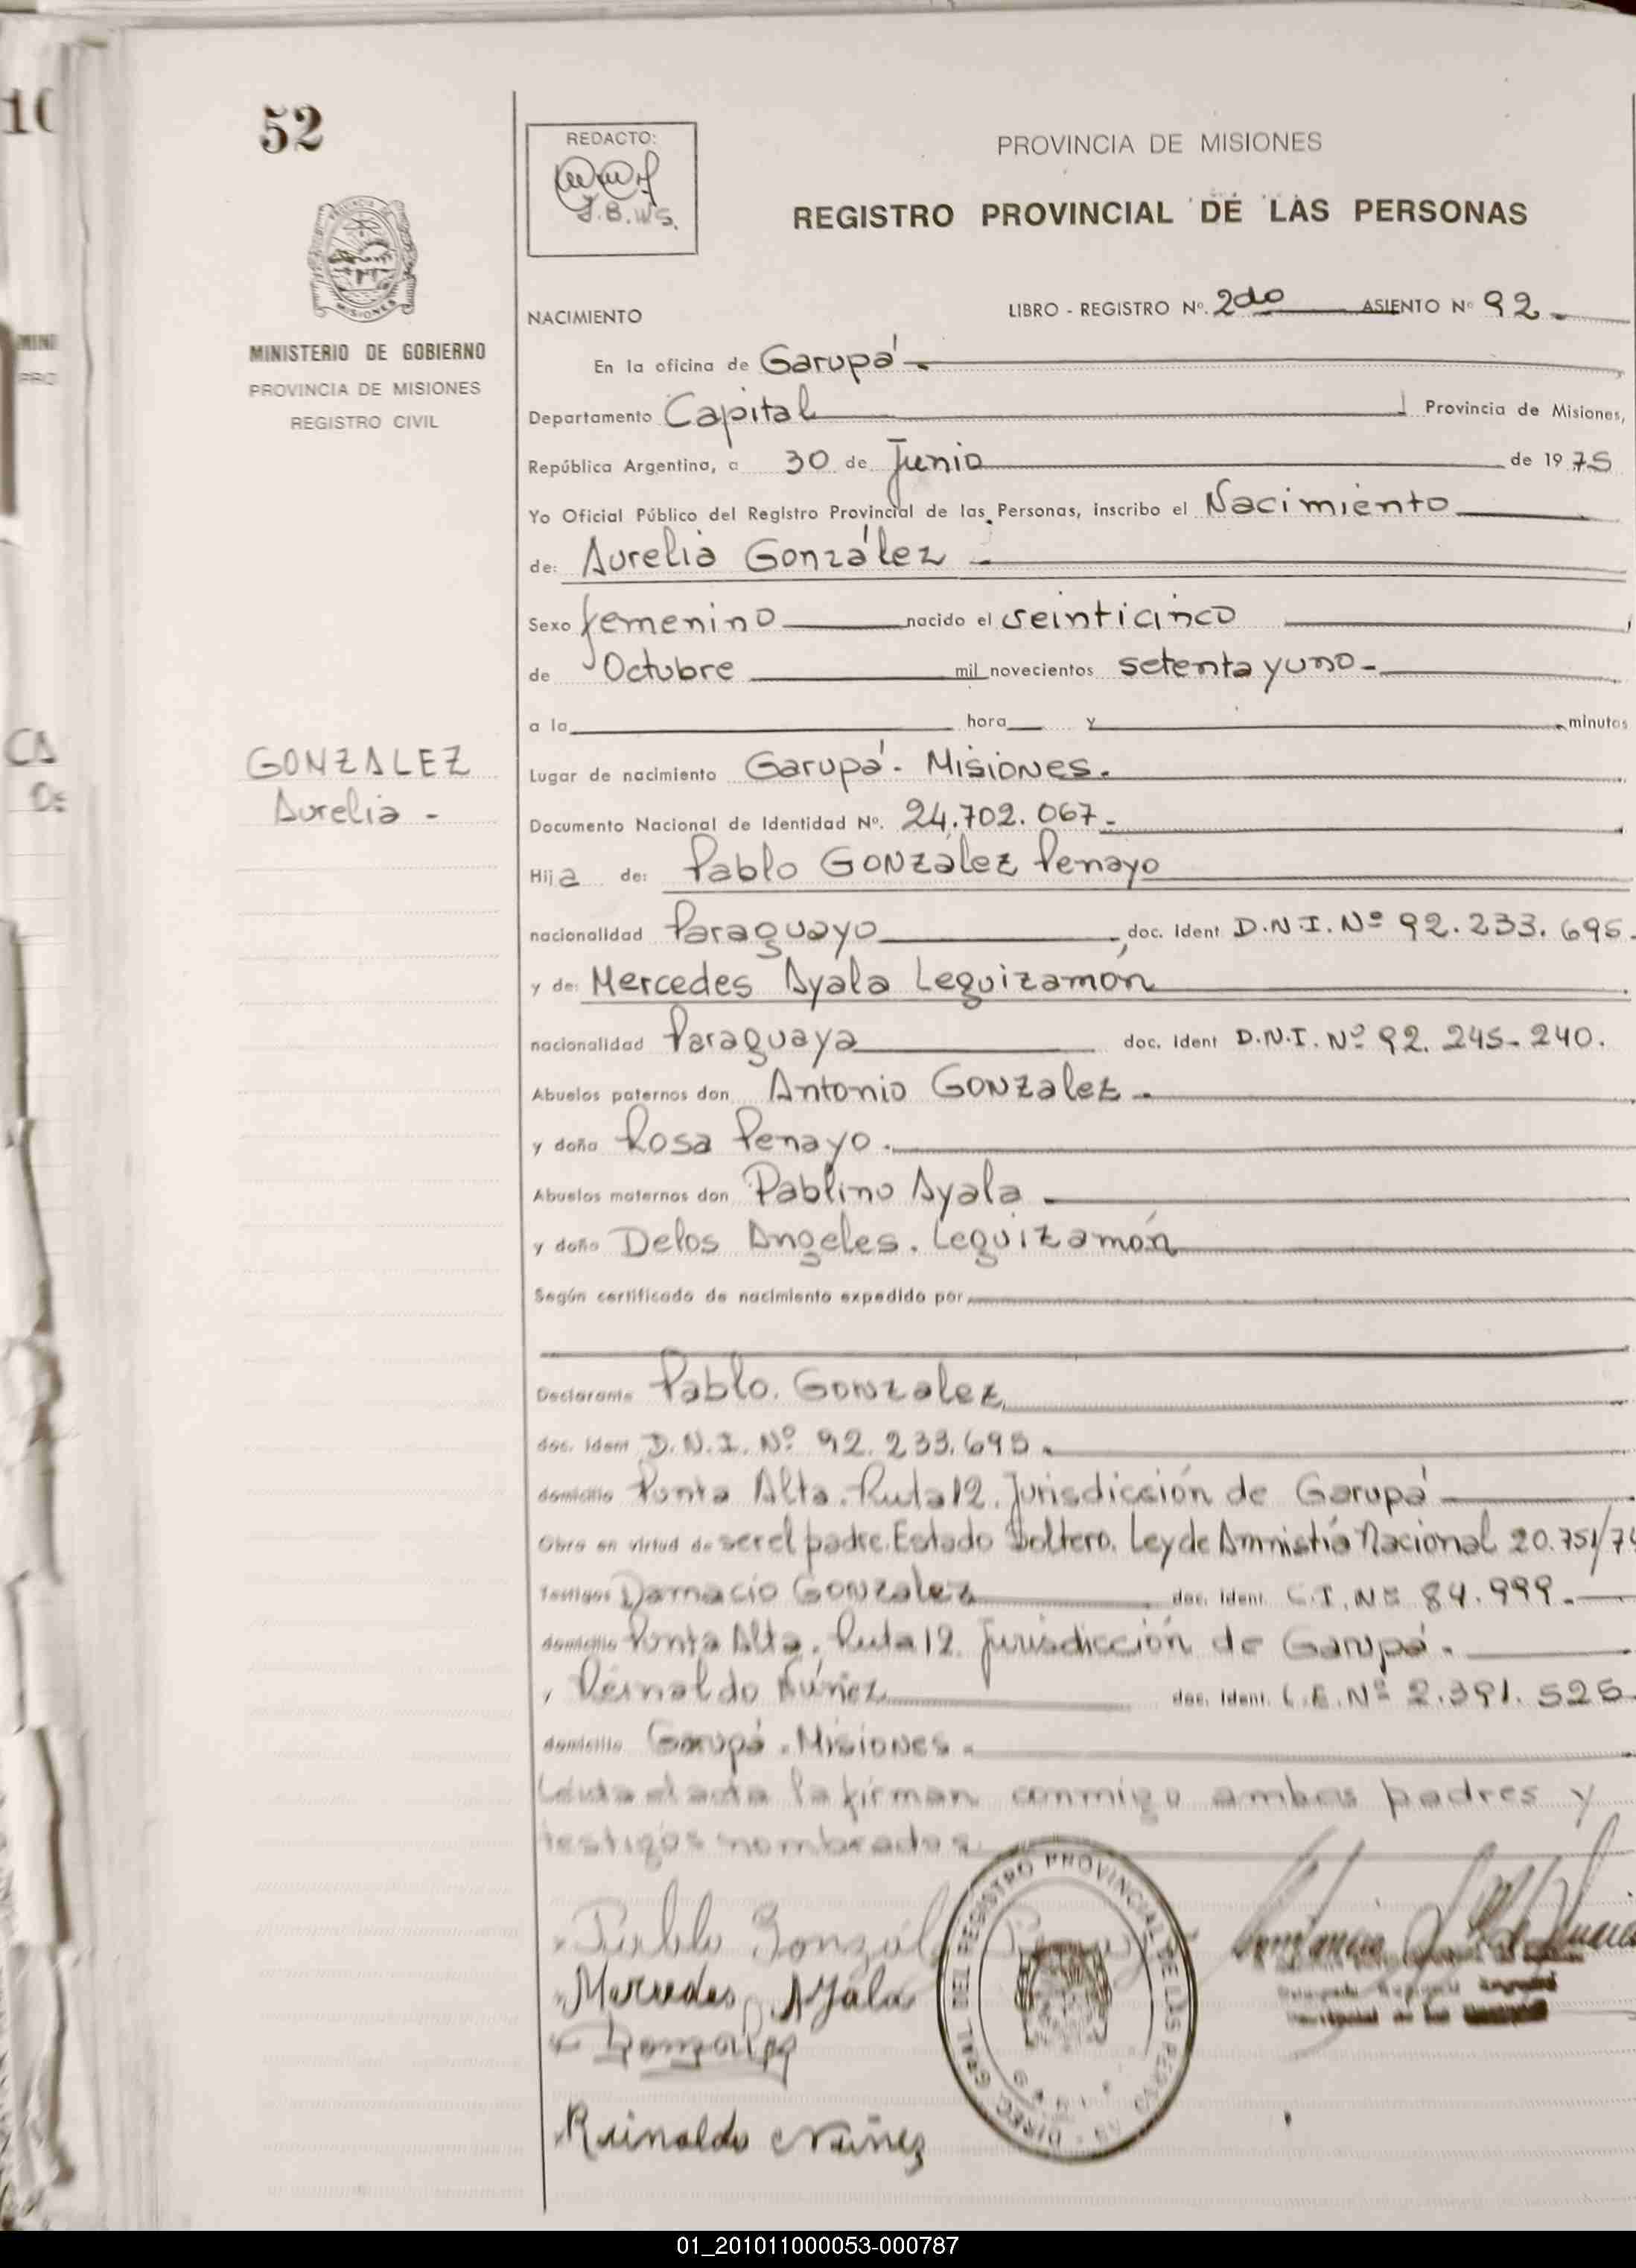 10
52
REDACTO:
J.B.W S.
PROVINCIA DE MISIONES
REGISTRO PROVINCIAL DE LAS PERSONAS
MISIONES
MINISTERIO DE GOBIERNO
PROVINCIA DE MISIONES
REGISTRO CIVIL
NACIMIENTO LIBRO - REGISTRO Nº. 2do ASIENTO Nº 92
En la oficina de Garupá
Departamento Capital Provincia de Misiones,
República Argentina, a 30 de Junio de 1975
Yo Oficial Público del Registro Provincial de las Personas, inscribo el Nacimiento
de: Aurelia González
Sexo femenino nacido el veinticinco
de Octubre mil novecientos setenta y uno-
a la hora y minutos
GONZALEZ
Aurelia -
Lugar de nacimiento Garupá. Misiones.
Documento Nacional de Identidad Nº. 24.702.067-
Hija de: Pablo GONZáLEZ Penayo
nacionalidad Paraguayo doc. Ident D.N.I. Nº 92.233.695
y de: Mercedes Ayala Leguizamón
nacionalidad Paraguaya doc. Ident D.N.I. Nº 92.245-240.
Abuelos paternos don Antonio GONZalez -
y doña Rosa Penayo.
Abuelos maternos don Pablino Ayala
y doña Delos Angeles. Leguizamón
Según certificado de nacimiento expedido por
Declarante Pablo. Gonzalez
doc. Ident D.N.I. Nº 92.233.695.
domicilio Punta Alta. Ruta 12. Jurisdicción de Garupá
Obra en virtud de ser el padre. Estado Soltero. Ley de Amnistía Nacional 20.751/74
Testigos Damacio Gonzalez doc. Ident. C.I. Nº 84.999.
domicilio Punta Alta. Ruta 12. Jurisdicción de Garupá.
, Reinaldo Núñez doc. Ident. L.E. Nº 2.391.525
domicilio Garupá. Misiones.
Leída el acta la firman conmigo ambos padres y
testigos nombrados
Pablo González
Mercedes Ayala
Gonzalez
Reinaldo Núñez
DIREC. GRAL. DEL REGISTRO PROVINCIAL DE LAS PERSONAS
01_201011000053-000787